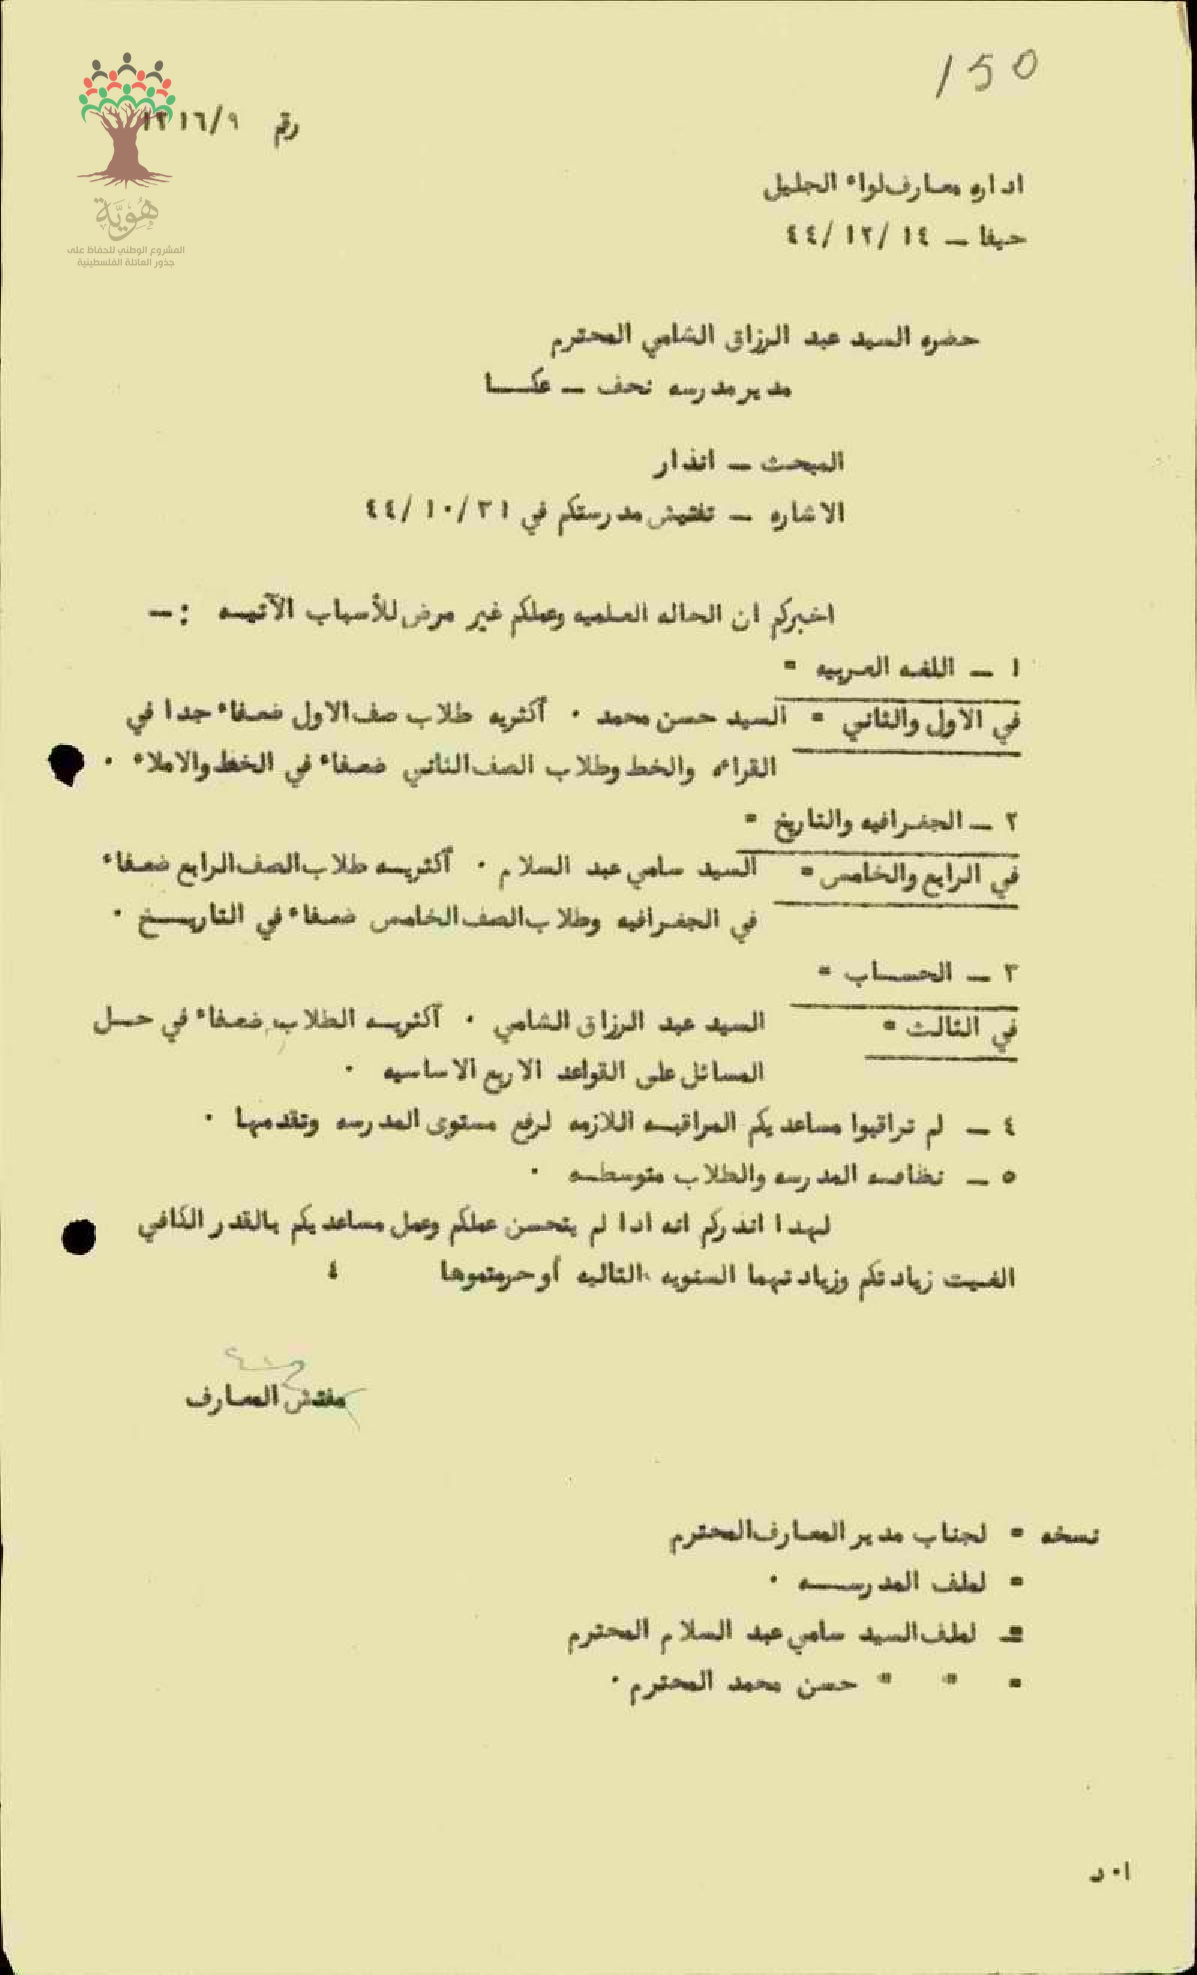 150
رقم ١٢١٦/٩
هُوِيَّة
المشروع الوطني للحفاظ على
جذور العائلة الفلسطينية
اداره معارف لواء الجليل
حيفا – ١٤ /١٢ /٤٤
حضره السيد عبد الرزاق الشامي المحترم
مدير مدرسه نحف – عكـــا
المبحث – انذار
الاشاره – تفتيش مدرستكم في ٣١ /١٠ /٤٤
اخبركم ان الحاله العلميه وعملكم غير مرض للأسباب الآتيـه :–
١ – اللغه العربيه =
في الاول والثاني = السيد حسن محمد ٠ اكثريه طلاب صف الاول ضعفاء جدا في
القراءه والخط وطلاب الصف الثاني ضعفاء في الخط والاملاء ٠
٢ – الجغرافيه والتاريخ =
في الرابع والخامس = السيد سامي عبد السلام ٠ اكثريـه طلاب الصف الرابع ضعفاء
في الجغرافيه وطلاب الصف الخامس ضعفاء في التاريـخ ٠
٣ – الحساب =
في الثالث = السيد عبد الرزاق الشامي ٠ اكثريـه الطلاب ضعفاء في حـل
المسائل على القواعد الاربع الاساسيه ٠
٤ – لم تراقبوا مساعديكم المراقبـه اللازمه لرفع مستوى المدرسه وتقدمها ٠
٥ – نظافـه المدرسه والطلاب متوسطـه ٠
لهذا انذركم انه اذا لم يتحسن عملكم وعمل مساعديكم بالقدر الكافي
الغيت زيادتكم وزيادتهما السنويه التاليه أو حرمتموها ٤
مفتش المعارف
نسخه = لجناب مدير المعارف المحترم
= لملف المدرســه ٠
= لملف السيد سامي عبد السلام المحترم
= " " حسن محمد المحترم ٠
ا٠ د